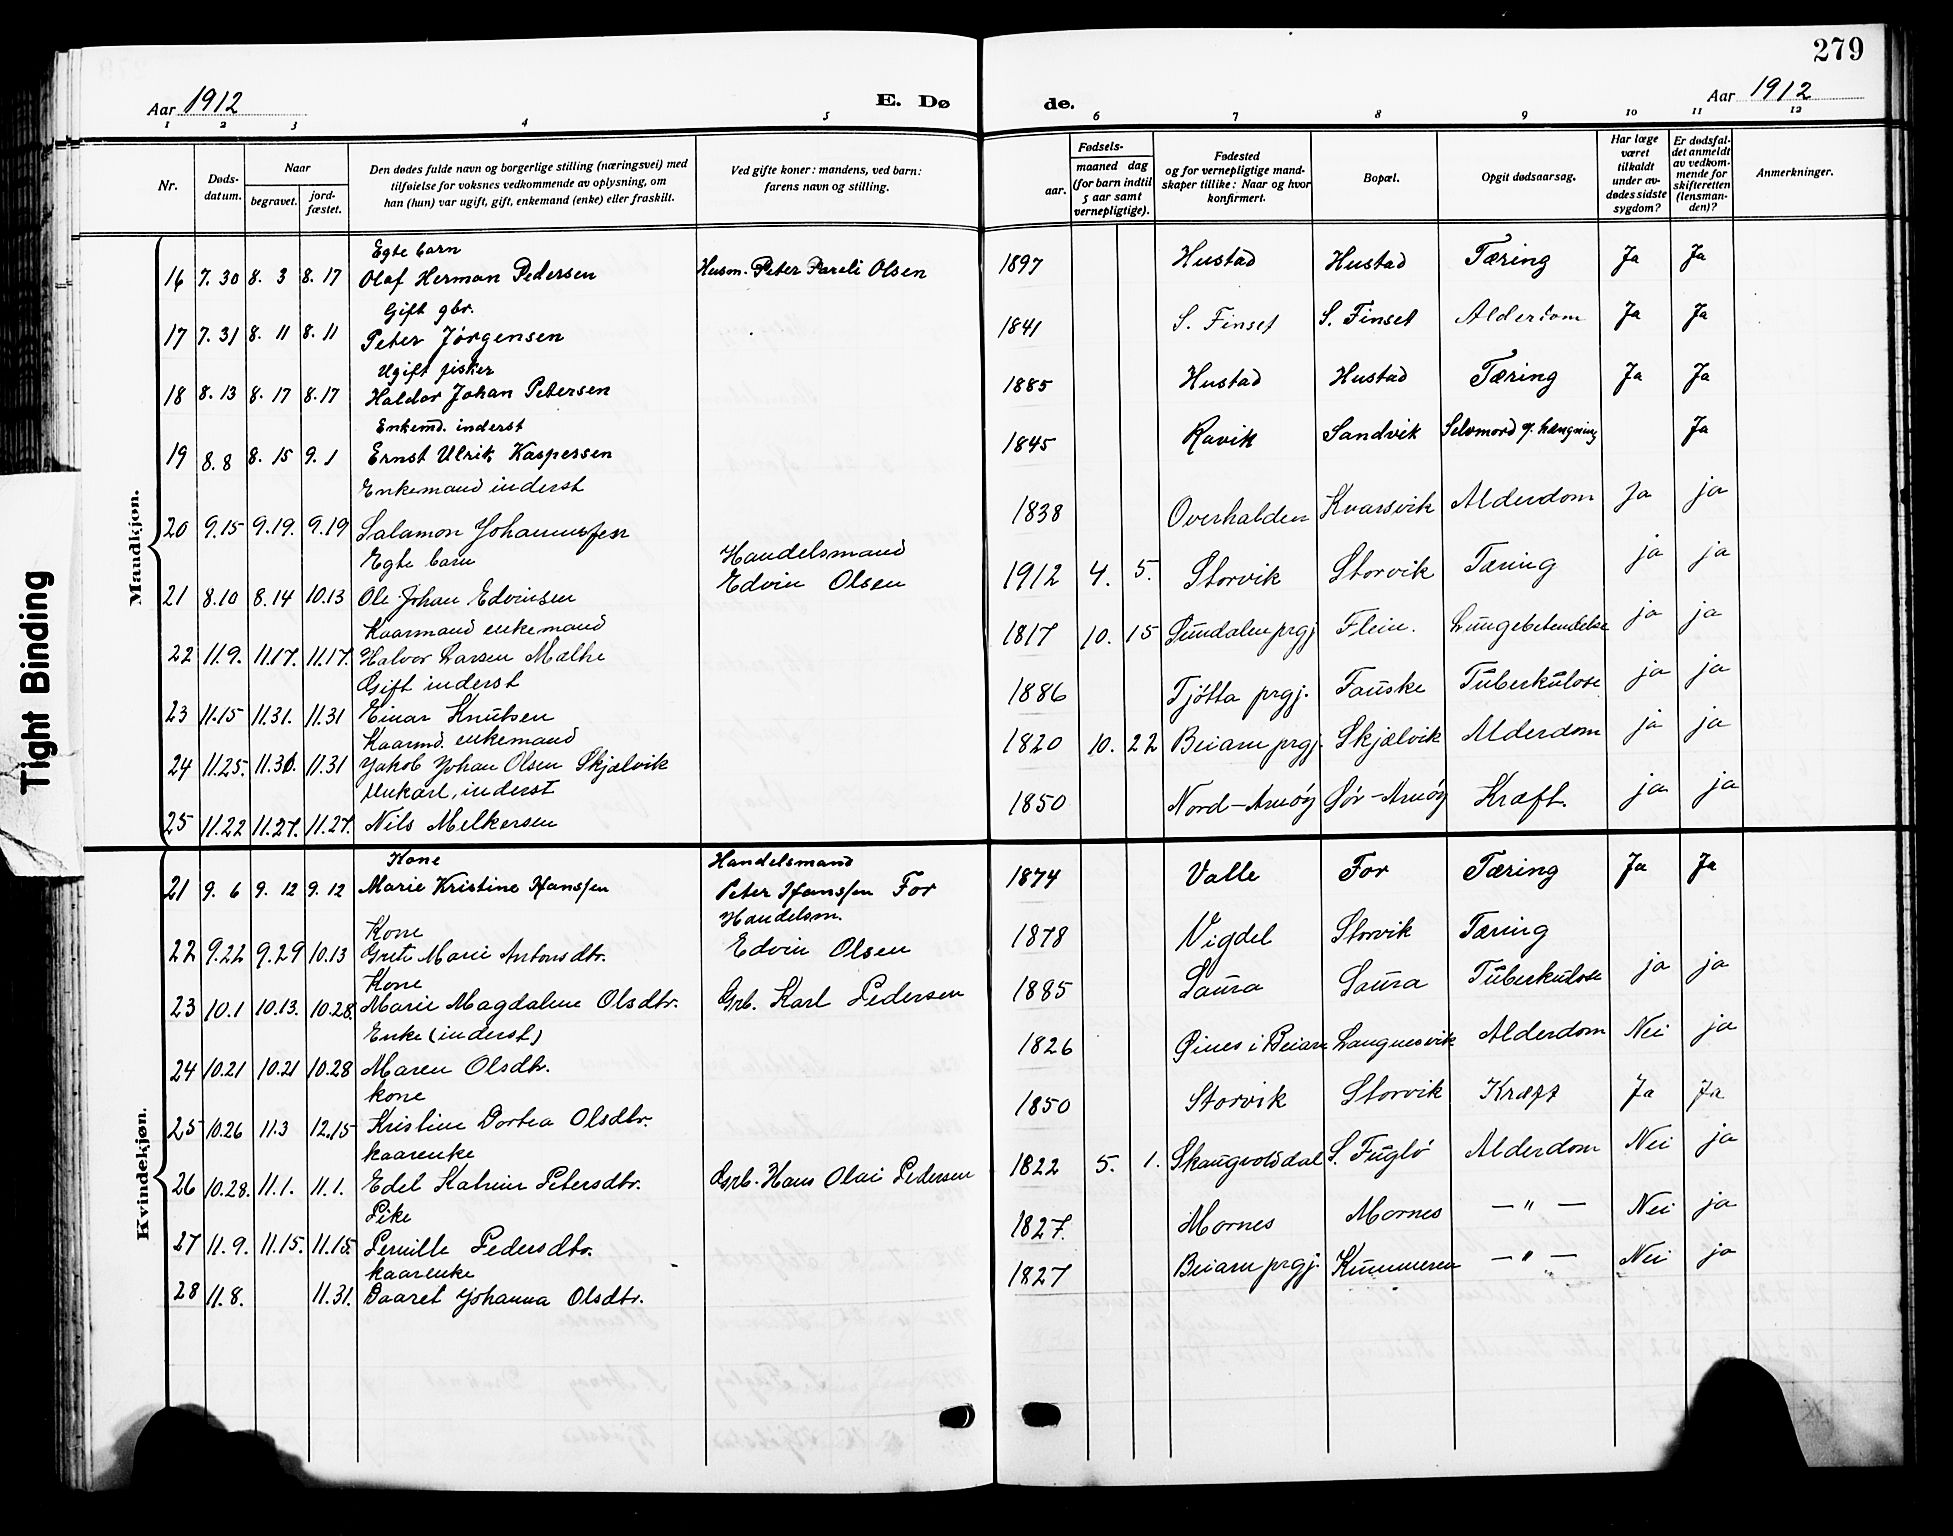 279
Aar 1912 E. Dø de. Aar 1912
1 2 3 4 5 6 7 8 9 10 11 12
Nr. Døds-datum. Naar begravet. jord-fæstet. Den dødes fulde navn og borgerlige stilling (næringsvei) med tilføielse for voksnes vedkommende av oplysning, om han (hun) var ugift, gift, enkemand (enke) eller fraskilt. Ved gifte koner: mandens, ved barn: farens navn og stilling. Fødsels- aar. maaned dag (for barn indtil 5 aar samt vernepligtige). Fødested og for vernepligtige mand-skaper tillike: Naar og hvor konfirmert. Bopæl. Opgit dødsaarsag. Har læge været tilkaldt under av-dødes sidste sygdom? Er dødsfal-det anmeldt av vedkom-mende for skifteretten (lensman-den)? Anmerkninger.
Mandkjøn.
Egte barn
16 7. 30 8. 3 8. 17 Olaf Herman Pedersen Husm. Peter Pareli Olsen 1897 Hustad Hustad Tæring Ja Ja
Gift gbr.
17 7. 31 8. 11 8. 11 Peter Jörgensen 1841 S. Finset S. Finset Alderdom Ja Ja
Ugift fisker
18 8. 13 8. 17 8. 17 Haldor Johan Petersen 1885 Hustad Hustad Tæring Ja Ja
Enkemd. inderst
19 8. 8 8. 15 9. 1 Ernst Ulrik Kaspersen 1845 Ravik Sandvik Selvmord v. hængning Ja
Enkemand inderst
20 9.15 9.19. 9.19 Salamon Johannessen 1838 Overhalden Kvarsvik Alderdom Ja ja
Egte barn Handelsmand
21 8.10 8.14 10.13 Ole Johan Edvinsen Edvin Olsen 1912 4. 5. Storvik Storvik Tæring ja ja
Kaarmand enkemand
22 11.9. 11.17. 11.17. Halvor Larsen Mælhe 1817 10. 15 Sundalen prgj. Flein. Lungebetendelse ja ja
Gift inderst
23 11.15 11.31. 11.31 Einar Knutsen 1886 Tjötta prgj. Fauske Tuberkulose ja ja
Kaarmd. enkemand
24 11.25. 11.31. 11.31 Jakob Johan Olsen Skjælvik 1820 10. 22 Beiarn prgj. Skjælvik Alderdom ja ja
Unkarl, inderst
25 11.22 11.27. 11.27. Nils Melkersen 1850 Nord-Arnöy Sör-Arnöy Kræft. ja ja
Kvindekjøn.
Kone Handelsmand
21 9. 6 9. 12 9. 12 Marie Kristine Hanssen Peter Hanssen For 1874 Valle For Tæring Ja Ja
Kone Handelsm.
22 9.22 9.29 10.13 Grete Marie Antonsdtr. Edvin Olsen 1878 Vigdel Storvik Tæring
Kone
23 10.1 10.13. 10.28. Marie Magdalene Olsdtr. Grb. Karl Pedersen 1885 Saura Saura Tuberkulose ja ja
Enke (inderst)
24 10.21 10.21 10.28 Maren Olsdtr. 1826 Öines i Beiarn Langnesvik Alderdom Nei ja
kone
25 10.26 11.3 12.15 Kristine Dortea Olsdtr. 1850 Storvik Storvik Kræft Ja Ja
kaarenke
26 10.28. 11.1. 11.1. Edel Katrine Petersdtr. Grb. Hans Olai Pedersen 1822 5. 1. Skaugvolsdal S. Fuglö Alderdom Nei ja
Pike
27 11.9. 11.15. 11.15. Pernille Pedersdtr. 1827. Mornes Mornes — " — Nei ja
kaarenke
28 11.8. 11.31. Baaret Johanna Olsdtr. 1827 Beiarn prgj. Kummeren — " — Nei ja
Tight Binding